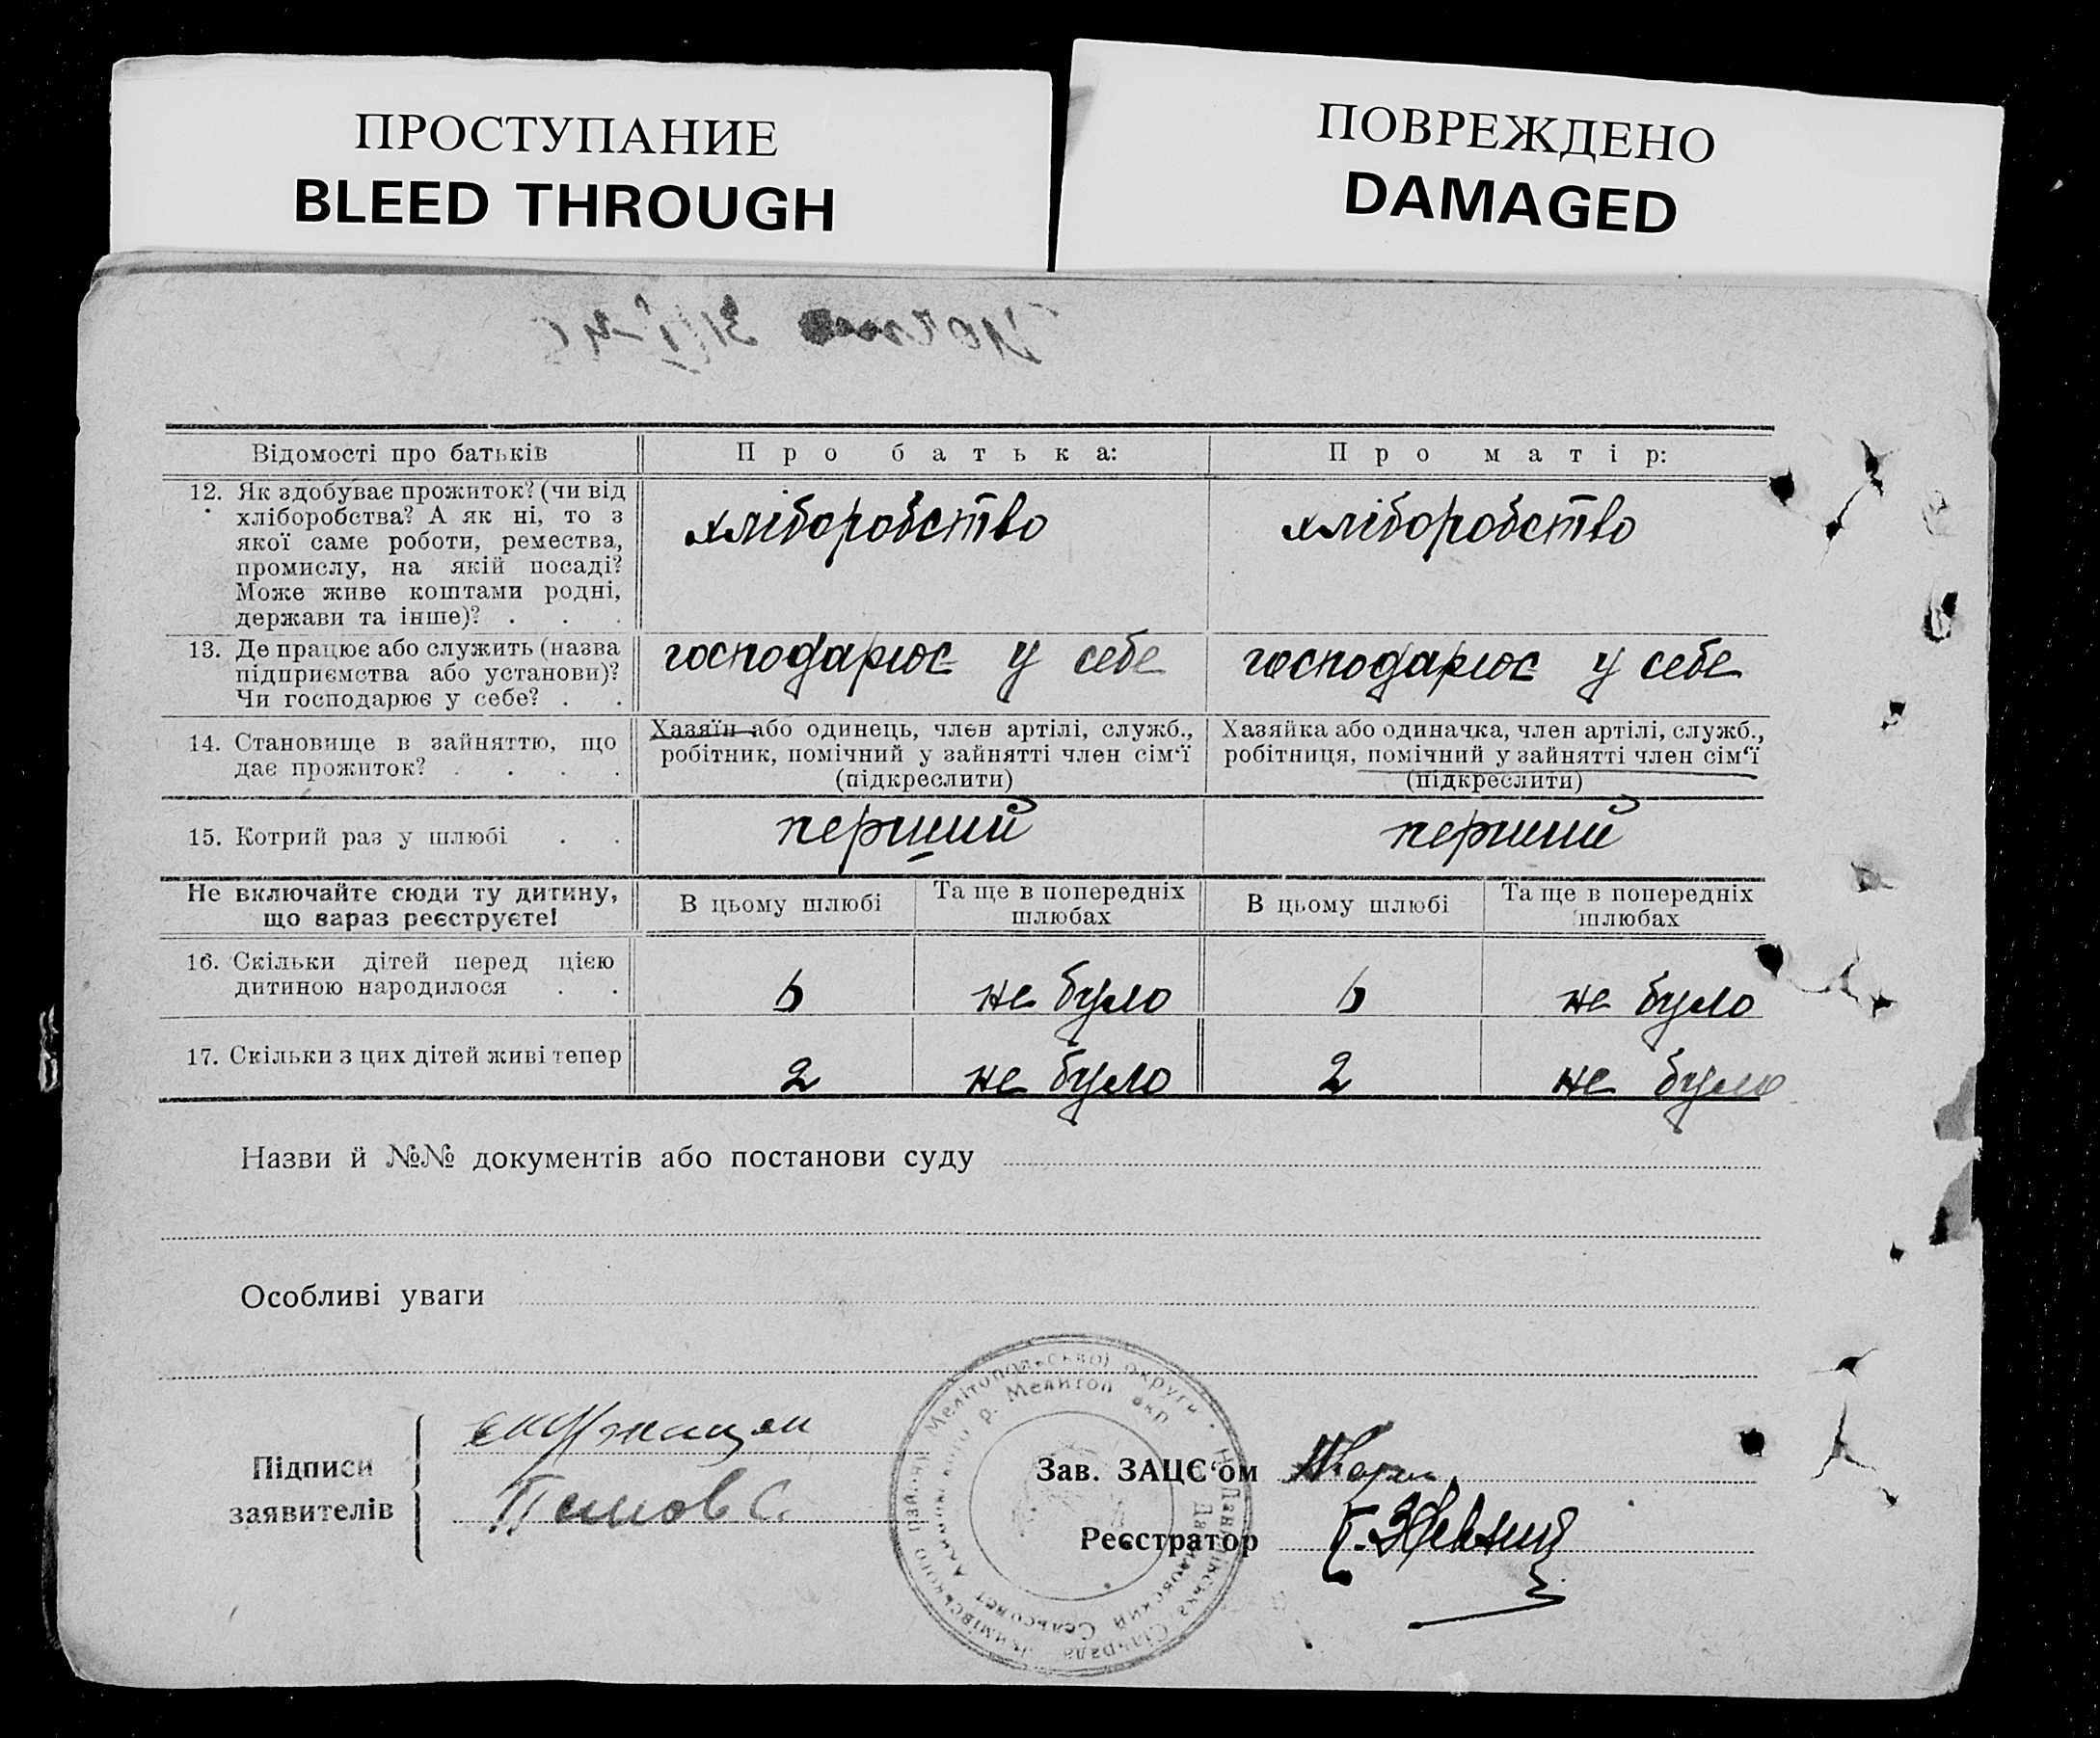 ПРОСТУПАНИЕ
BLEED THROUGH
ПОВРЕЖДЕНО
DAMAGED
Відомості про батьків
Про батька:
Про матір:
12. Як здобуває прожиток? (чи від
хліборобства? А як ні, то з
якої саме роботи, ремества,
промислу, на якій посаді?
Може живе коштами родні,
держави та інше)? . . .
хліборобство
хліборобство
13. Де працює або служить (назва
підприємства або установи)?
Чи господарює у себе? . .
господарює у себе
господарює у себе
14. Становище в зайняттю, що
дає прожиток? . . . .
Хазяїн або одинець, член артілі, служб.,
робітник, помічний у зайнятті член сім‘ї
(підкреслити)
Хазяйка або одиначка, член артілі, служб.,
робітниця, помічний у зайнятті член сім‘ї
(підкреслити)
15. Котрий раз у шлюбі . .
перший
перший
Не включайте сюди ту дитину,
що зараз реєструєте!
В цьому шлюбі
Та ще в попередніх
шлюбах
В цьому шлюбі
Та ще в попередніх
шлюбах
16. Скільки дітей перед цією
дитиною народилося . .
6
не було
6
не було
17. Скільки з цих дітей живі тепер
2
не було
2
не було
Назви й №№ документів або постанови суду
Особливі уваги
Підписи
заявителів
Попов С.
Зав. ЗАЦС‘ом
Реєстратор
Мелітопольської округи
р. Мелитоп окр
Сільрада
Сельсовет